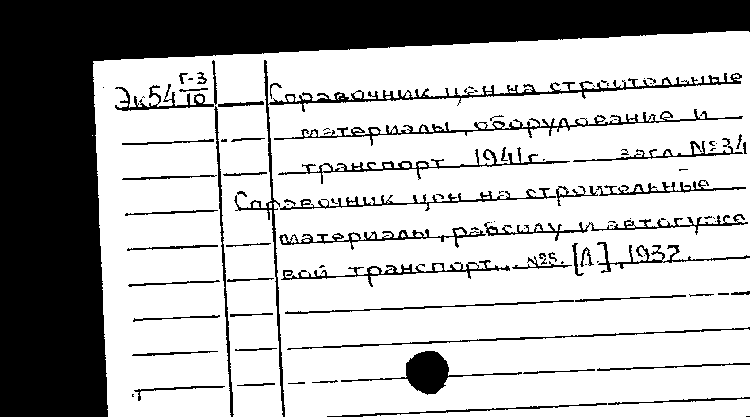 Эк54 Г-3/10 Справочник цен на строительные
материалы, оборудование и
транспорт 1941г. загл. №34
Справочник цен на строительные
материалы, рабсилу и автогуже
вой транспорт... №5. [Л], 1937.